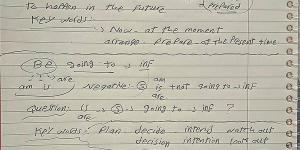 to happen in the future prepared
Key words:
Now - at the moment
arrange - prepare - at the present time
Be going to → inf
are
am is Negative: S am is are + not going to → inf
Question: is → S → going to → inf ?
are
Key words: Plan decide intend watch out
decision intention look out